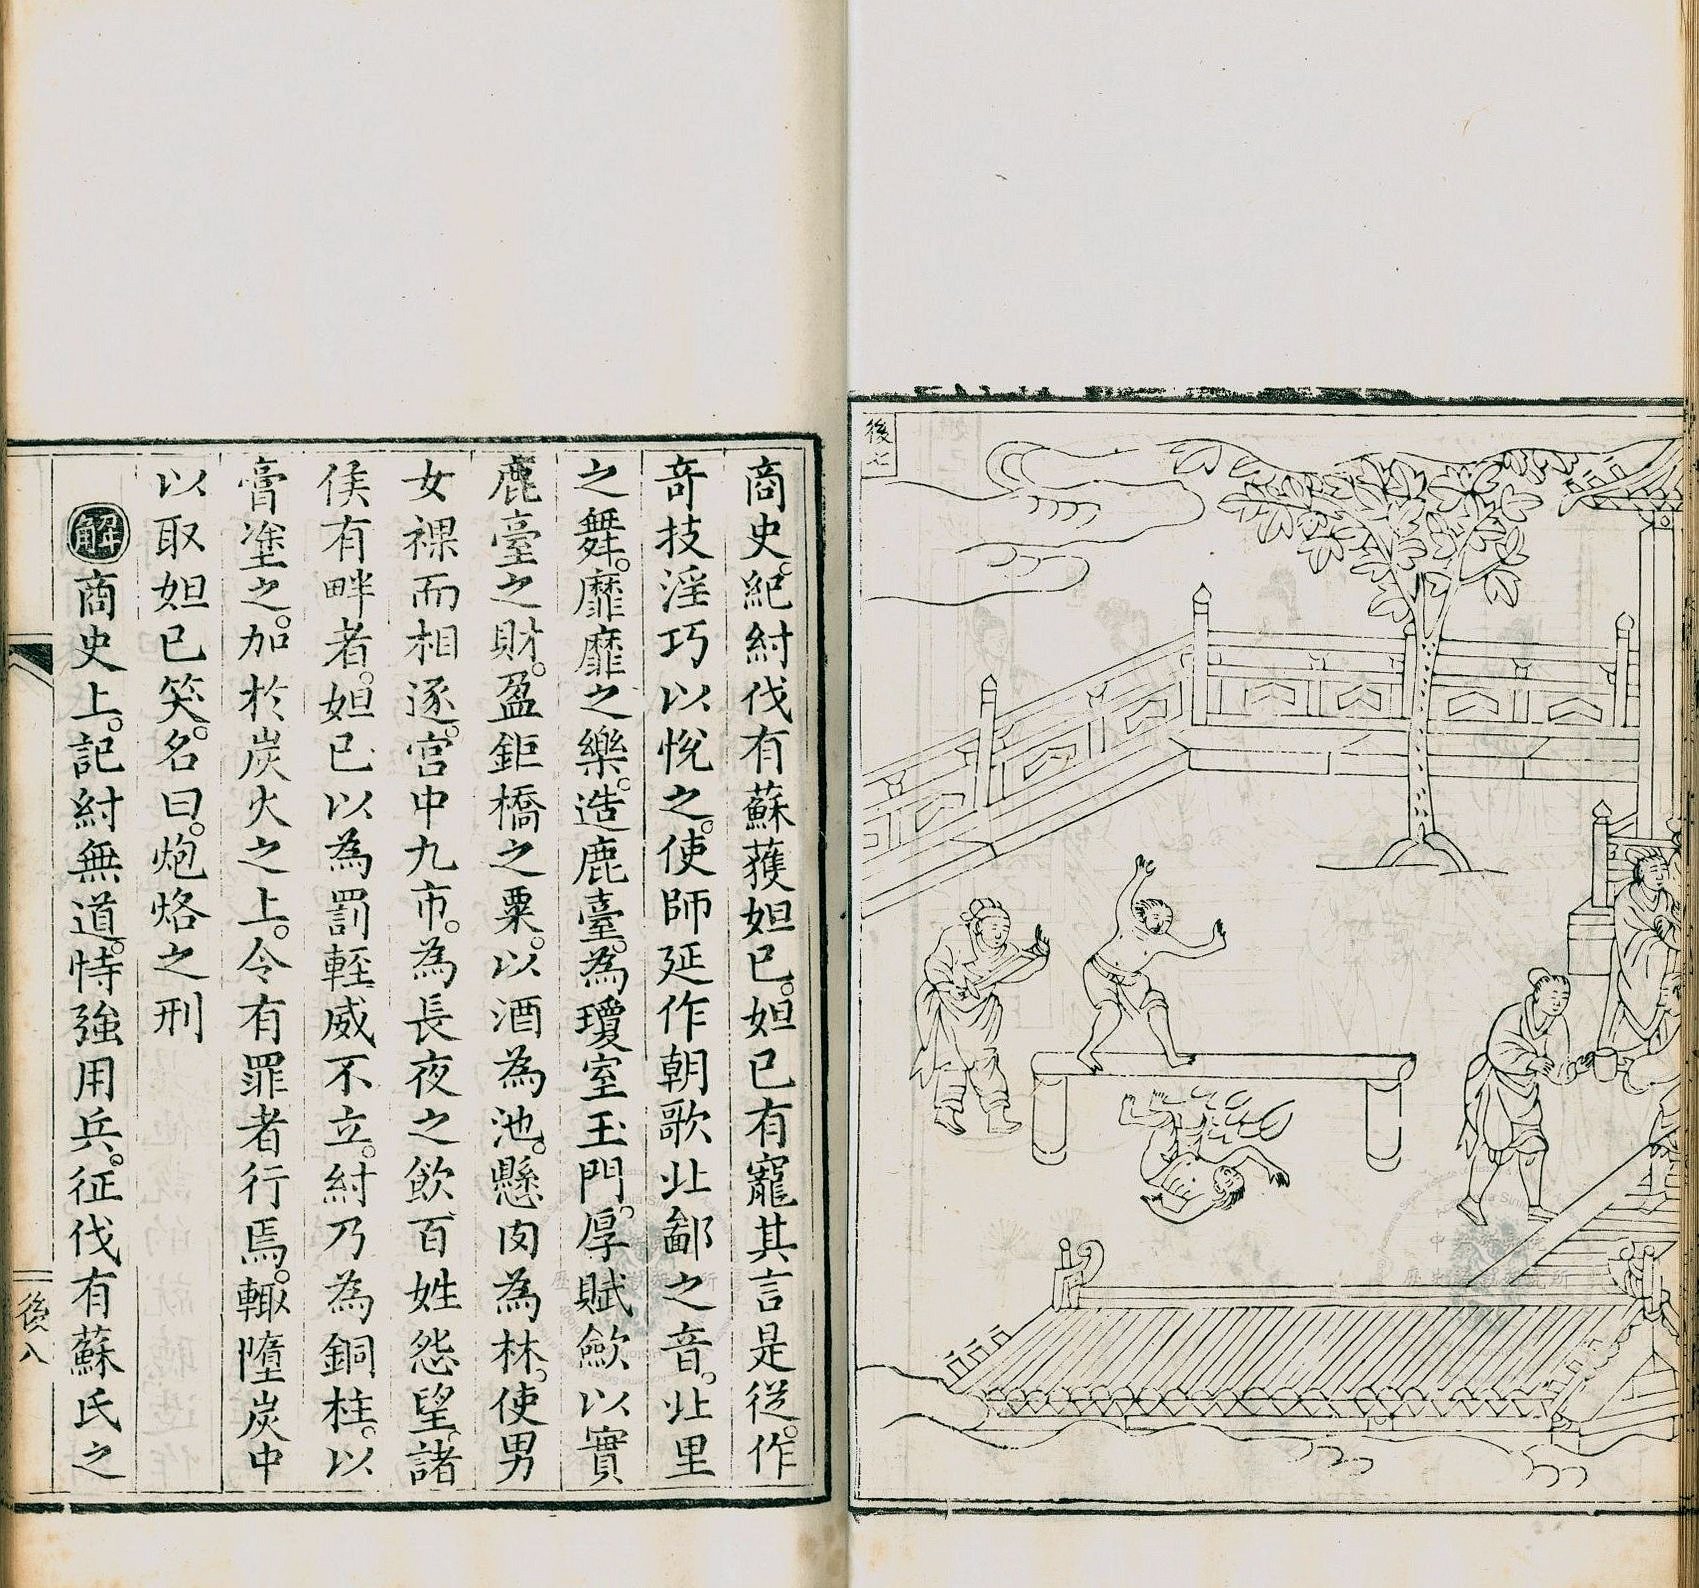 後七
商史。紀紂伐有蘇獲妲已。妲已有寵其言是從。作
奇技淫巧以悅之。使師延作朝歌北鄙之音。北里
之舞。靡靡之樂。造鹿臺。為瓊室玉門。厚賦斂以實
鹿臺之財。盈鉅橋之粟。以酒為池。懸肉為林。使男
女裸而相逐。宮中九市。為長夜之飲百姓怨望。諸
侯有畔者。妲已以為罰輕威不立。紂乃為銅柱。以
膏塗之。加於炭火之上。令有罪者行焉。輙墮炭中
以取妲已笑。名曰。炮烙之刑
解商史上。記紂無道。恃強用兵。征伐有蘇氏之
後八